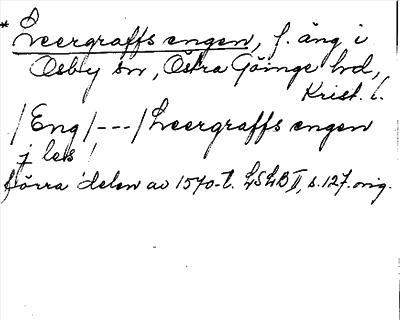 * Leergraffs engen, f. äng i
Osby sn, Östra Göinge hd,
Krist. l.
/Eng/---/Leergraffs engen
j les /
förra delen av 1540-t. LSLB II, s. 127. orig.